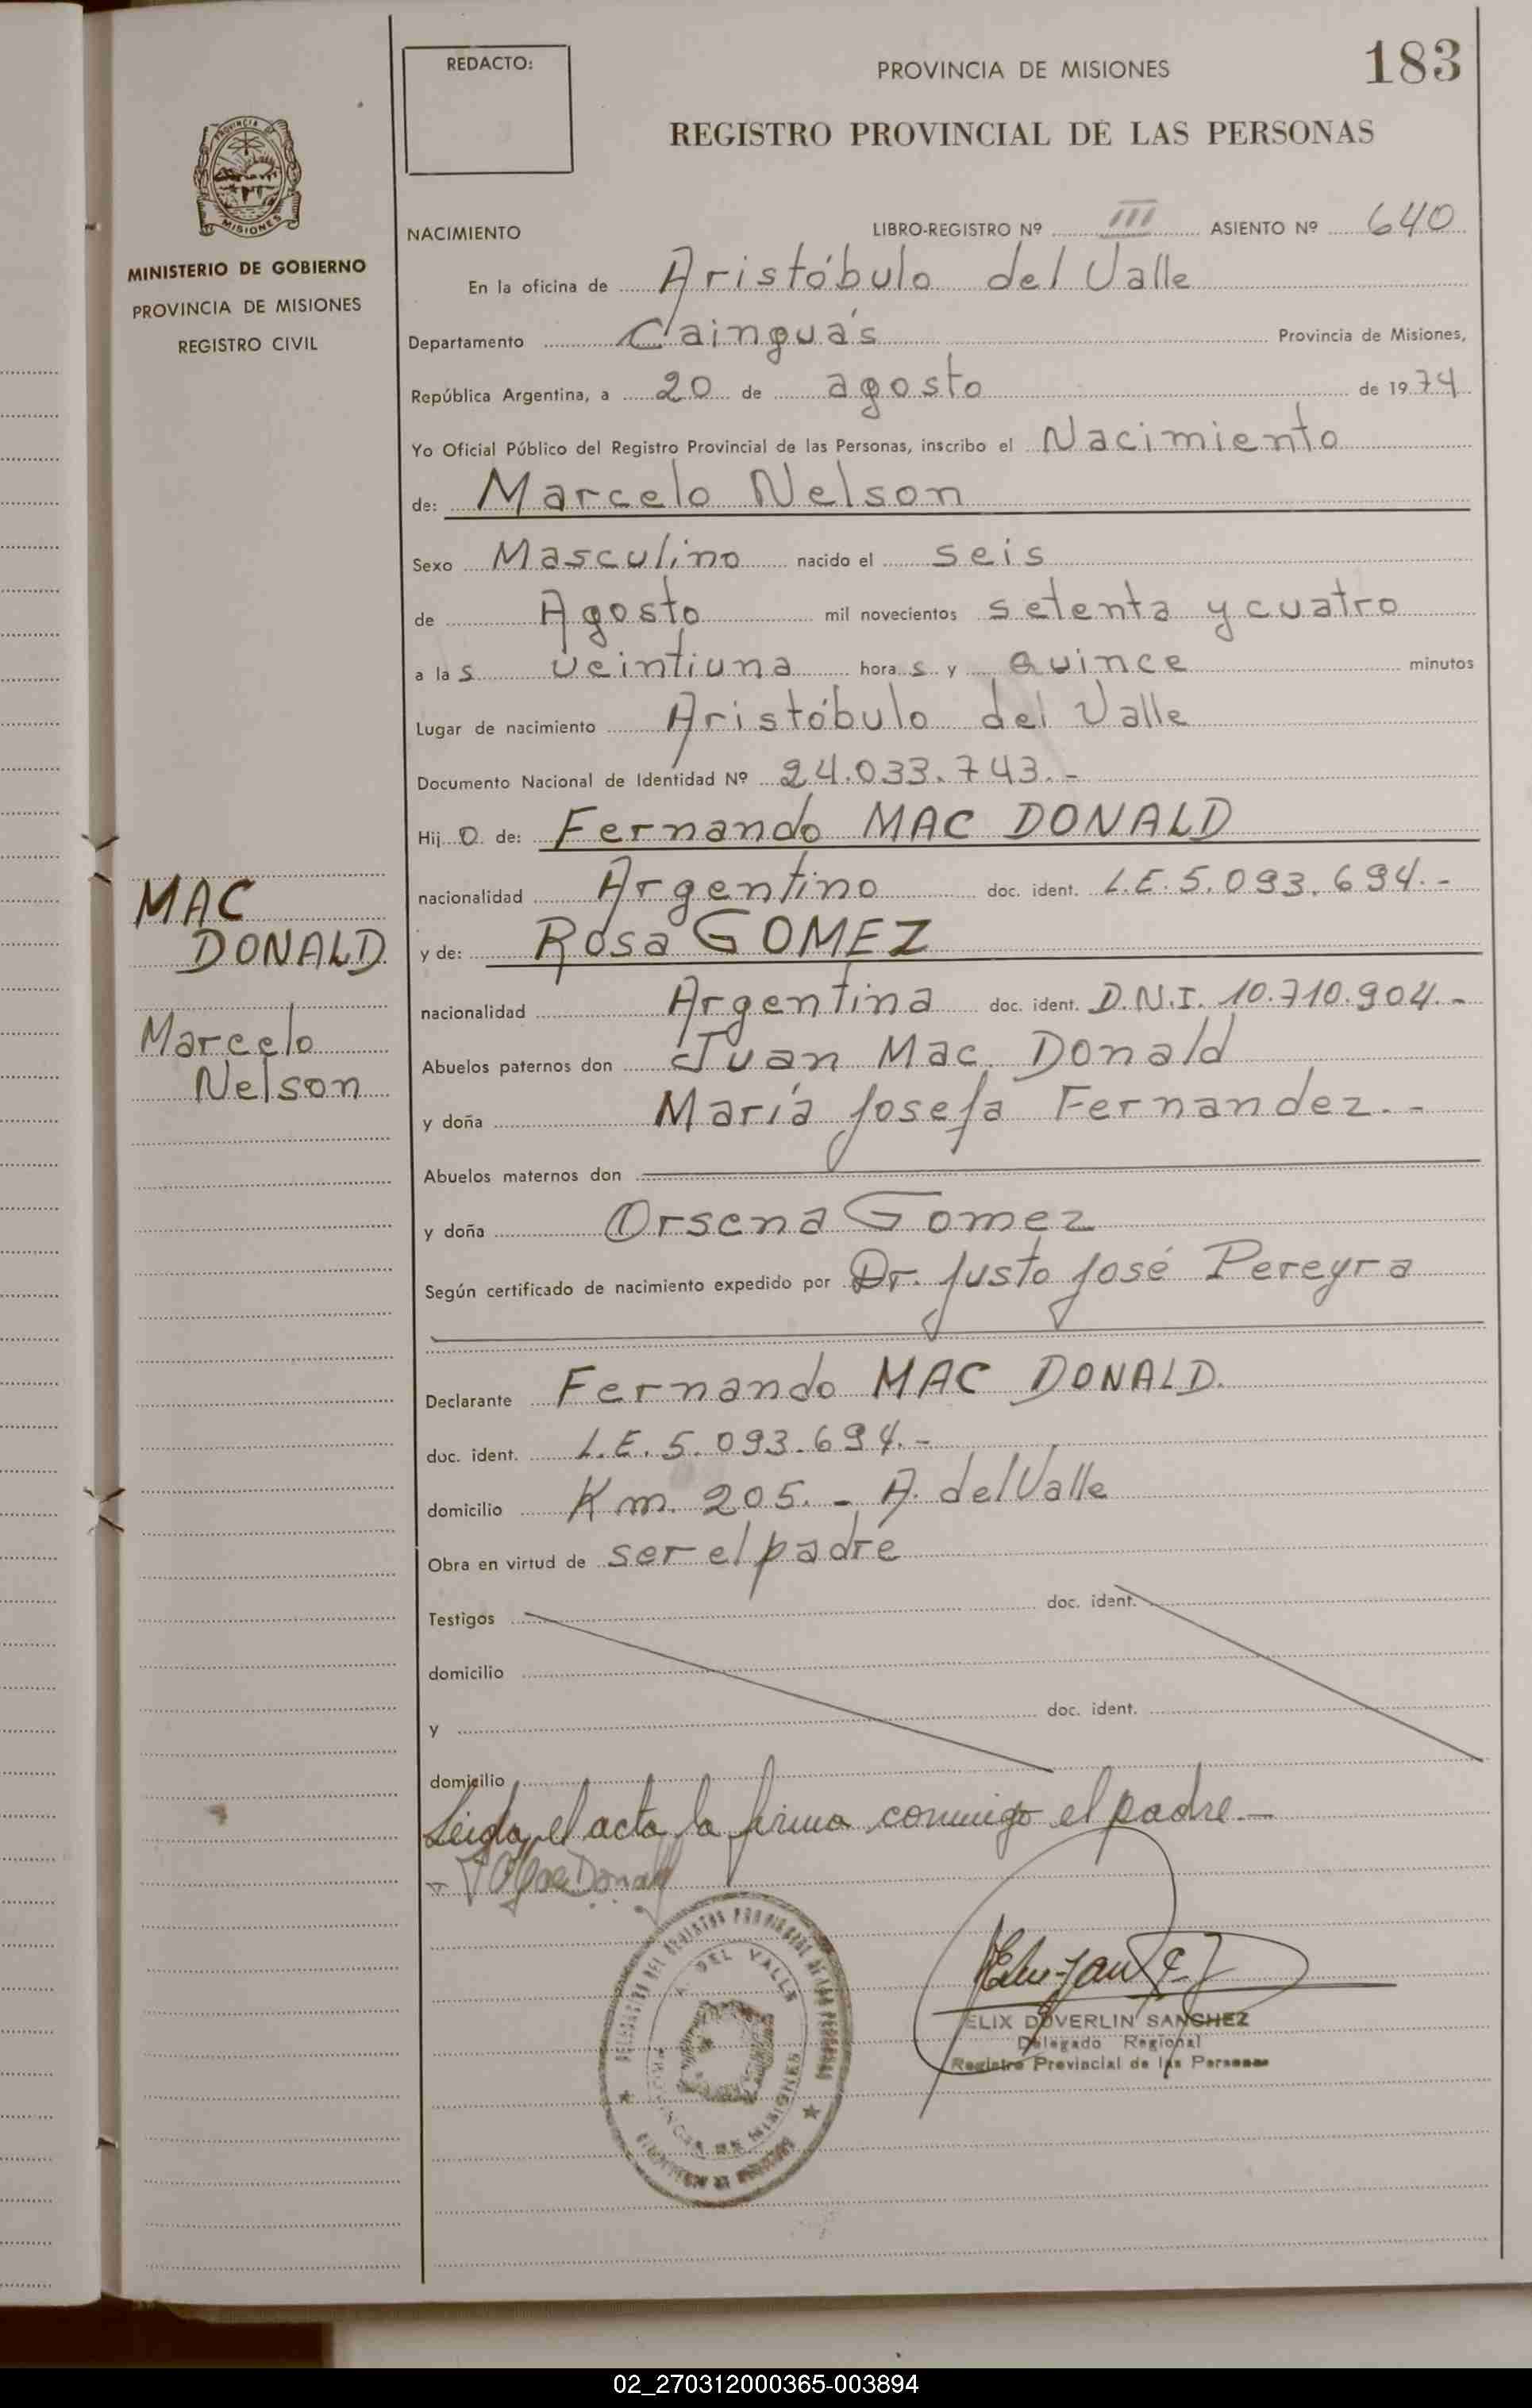 REDACTO:
PROVINCIA DE MISIONES
183
REGISTRO PROVINCIAL DE LAS PERSONAS
PROVINCIA DE
MISIONES
MINISTERIO DE GOBIERNO
PROVINCIA DE MISIONES
REGISTRO CIVIL
NACIMIENTO
LIBRO-REGISTRO Nº III ASIENTO Nº 640
En la oficina de Aristóbulo del Valle
Departamento Cainguás Provincia de Misiones,
República Argentina, a 20 de agosto de 1974
Yo Oficial Público del Registro Provincial de las Personas, inscribo el Nacimiento
de: Marcelo Nelson
Sexo Masculino nacido el seis
de Agosto mil novecientos setenta y cuatro
a las veintiuna horas y quince minutos
Lugar de nacimiento Aristóbulo del Valle
Documento Nacional de Identidad Nº 24.033.743.-
Hijo de: Fernando MAC DONALD
nacionalidad Argentino doc. ident. L.E. 5.093.694.-
y de: Rosa GOMEZ
nacionalidad Argentina doc. ident. D.N.I. 10.710.904.-
Abuelos paternos don Juan Mac. Donald
y doña María Josefa Fernandez.-
Abuelos maternos don
y doña Orsena Gomez
Según certificado de nacimiento expedido por Dr. Justo José Pereyra
Declarante Fernando MAC DONALD.
doc. ident. L.E. 5.093.694.-
domicilio Km. 205.- A. del Valle
Obra en virtud de ser el padre
Testigos doc. ident.
domicilio
y doc. ident.
domicilio
Leida el acta la firma conmigo el padre.-
MAC
DONALD
Marcelo
Nelson
DEL VALLE
PROVINCIA DE MISIONES
ELIX DUVERLIN SANCHEZ
Delegado Regional
Registro Provincial de las Personas
02_270312000365-003894